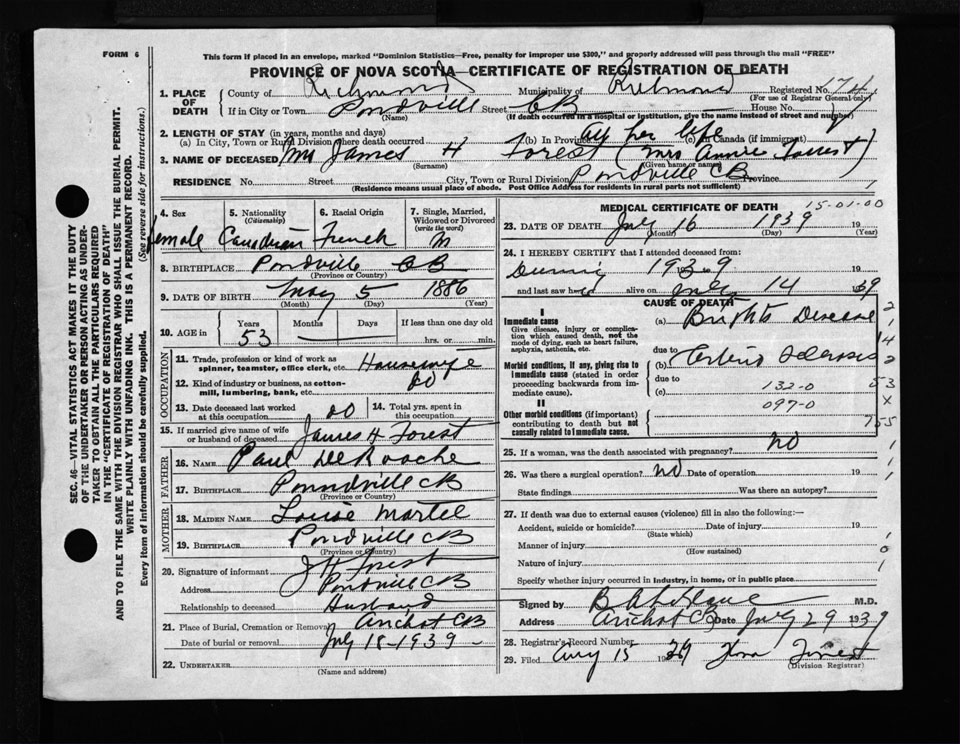 FORM 6
This form if placed in an envelope, marked "Dominion Statistics—Free, penalty for improper use $300," and properly addressed will pass through the mail "FREE"
PROVINCE OF NOVA SCOTIA—CERTIFICATE OF REGISTRATION OF DEATH
SEC. 46—VITAL STATISTICS ACT MAKES IT THE DUTY
OF THE UNDERTAKER OR PERSON ACTING AS UNDER-
TAKER TO OBTAIN ALL THE PARTICULARS REQUIRED
IN THE "CERTIFICATE OF REGISTRATION OF DEATH"
AND TO FILE THE SAME WITH THE DIVISION REGISTRAR WHO SHALL ISSUE THE BURIAL PERMIT.
WRITE PLAINLY WITH UNFADING INK. THIS IS A PERMANENT RECORD.
Every item of information should be carefully supplied. (See reverse side for instructions.)
1. PLACE OF DEATH County of Richmond Municipality of Richmond Registered No. 174
(For use of Registrar General only)
If in City or Town Pondville Street CB House No.
(Name) (If death occurred in a hospital or institution, give the name instead of street and number)
2. LENGTH OF STAY (in years, months and days)
(a) In City, Town or Rural Division where death occurred (b) In Province all her life (c) In Canada (if immigrant)
3. NAME OF DECEASED Mrs James H Forest (Mrs Annie Forrest)
(Surname) (Given name or names)
RESIDENCE No. Street City, Town or Rural Division Pondville CB Province
(Residence means usual place of abode. Post Office Address for residents in rural parts not sufficient)
4. Sex
female
5. Nationality
(Citizenship)
Canadian
6. Racial Origin
French
7. Single, Married,
Widowed or Divorced
(write the word)
M
8. BIRTHPLACE Pondville CB
(Province or Country)
9. DATE OF BIRTH May 5 1886
(Month) (Day) (Year)
10. AGE in Years 53 Months Days If less than one day old
hrs. or min.
OCCUPATION
11. Trade, profession or kind of work as
spinner, teamster, office clerk, etc. Housewife
12. Kind of industry or business, as cotton-
mill, lumbering, bank, etc. DO
13. Date deceased last worked
at this occupation DO
14. Total yrs. spent in
this occupation
15. If married give name of wife
or husband of deceased James H Forest
FATHER
16. NAME Paul DeRoache
17. BIRTHPLACE Ponndville CB
(Province or Country)
MOTHER
18. MAIDEN NAME Louise Martel
19. BIRTHPLACE Pondville CB
(Province or Country)
20. Signature of informant J H Forest
Address Pondville CB
Relationship to deceased Husband
21. Place of Burial, Cremation or Removal Arichat CB
Date of burial or removal July 18-1939-
22. UNDERTAKER
(Name and address)
MEDICAL CERTIFICATE OF DEATH 15-01-00
23. DATE OF DEATH July 16 1939
(Month) (Day) (Year)
24. I HEREBY CERTIFY that I attended deceased from:
During 1939 19
and last saw her alive on July 14 1939
CAUSE OF DEATH
I
Immediate cause
Give disease, injury or complica-
tion which caused death, not the
mode of dying, such as heart failure,
asphyxia, asthenia, etc.
(a) Brights Disease
due to
Morbid conditions, if any, giving rise to
immediate cause (stated in order
proceeding backwards from im-
mediate cause).
(b) Arterio Sclerosis
due to
(c) 132-0
097-0
II
Other morbid conditions (if important)
contributing to death but not
causally related to immediate cause.
25. If a woman, was the death associated with pregnancy? NO
26. Was there a surgical operation? NO Date of operation 19
State findings Was there an autopsy?
27. If death was due to external causes (violence) fill in also the following:—
Accident, suicide or homicide? Date of injury 19
(State which)
Manner of injury
(How sustained)
Nature of injury
Specify whether injury occurred in industry, in home, or in public place
Signed by M.D.
Address Arichat CB Date July 29 1939
28. Registrar's Record Number
29. Filed Aug 15 1939 Flora Forest
(Division Registrar)